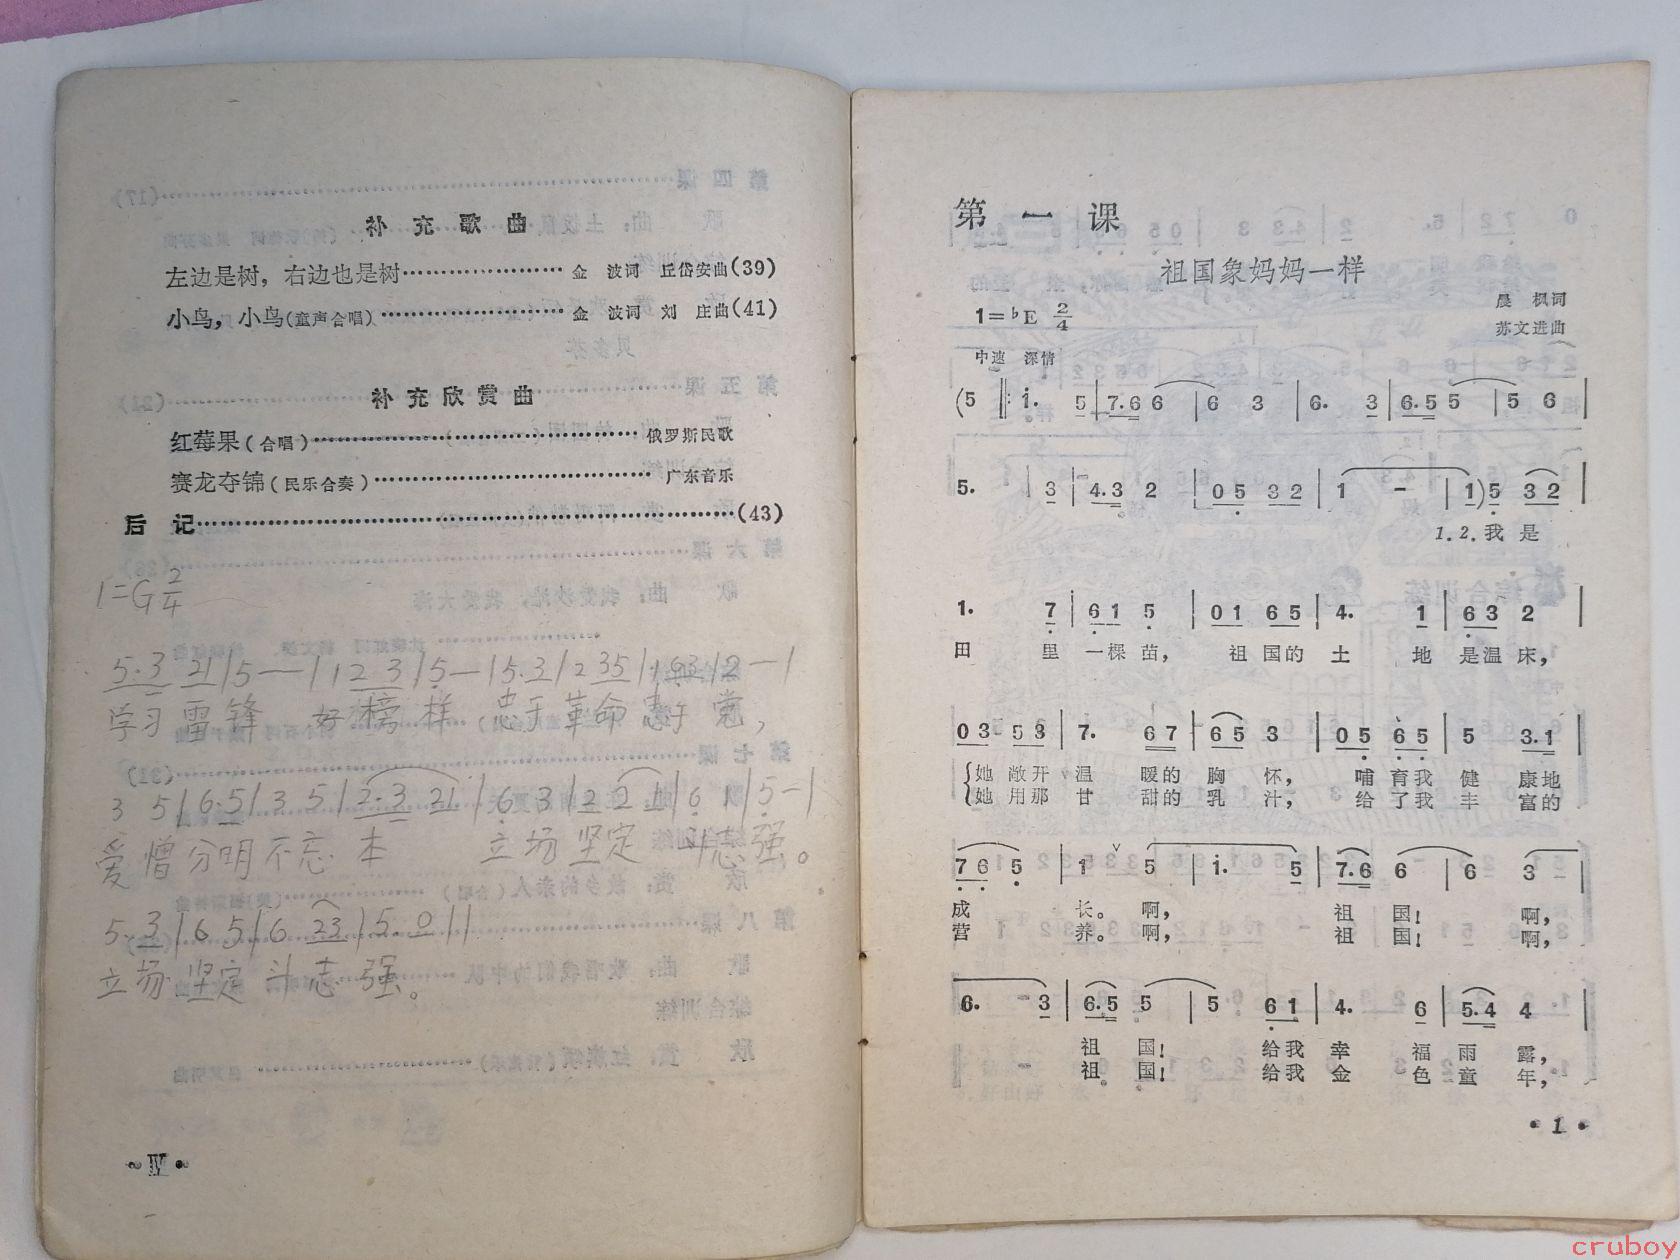 补充歌曲
左边是树，右边也是树……………………金　波词　丘岱安曲(39)
小鸟，小鸟(童声合唱)……………………金　波词　刘　庄曲(41)
补充欣赏曲
红莓果(合唱)……………………俄罗斯民歌
赛龙夺锦(民乐合奏)……………………广东音乐
后　记……………………(43)
1=G 2/4
5·3 21|5—|12 3|5—|5.3|2 35|
学习雷锋 好榜样 忠于革命忠于党，
3 5|6·5|3 5|2·3 21|6 3|2 2 1|6 1|5—|
爱憎分明不忘本 立场坚定斗志强。
5·3|6 5|6 23|5 0||
立场坚定斗志强。
Ⅶ
第一课
祖国象妈妈一样
1=♭E 2/4
晨　枫词
苏文进曲
中速　深情
(5 ‖: 1. 5|7.6 6|6 3|6. 3|6.5 5|5 6|
5. 3|4.3 2|05 32|1 -|1)5 32|
1.2.我是
1. 7|61 5|01 65|4. 1|63 2|
田　里　一棵　苗，　祖国的　土　地　是温　床，
03 53|7. 67|65 3|05 65|5 3.1|
她　敞开　温　暖的　胸　怀，　哺　育我　健　康地
她　用那　甘　甜的　乳　汁，　给　了我　丰　富的
76 5|1 5|1. 5|7.6 6|6 3|
成　长。　啊，　祖　国！　啊，
营　养。　啊，　祖　国！　啊，
6. -3|6.5 5|5 61|4. 6|5.4 4|
祖　国！　给我　幸　福　雨　露，
祖　国！　给我　金　色　童　年，
· 1 ·
cruboy